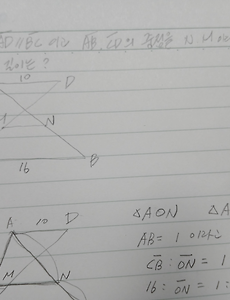 AD // BC 이고 AB, CD의 중점을 N
길이는?
10 D
N
16 B
A 10 D
M N
△AON △A
AB = 1 이라고
CB : ON = 1
16 : ON = 1 :